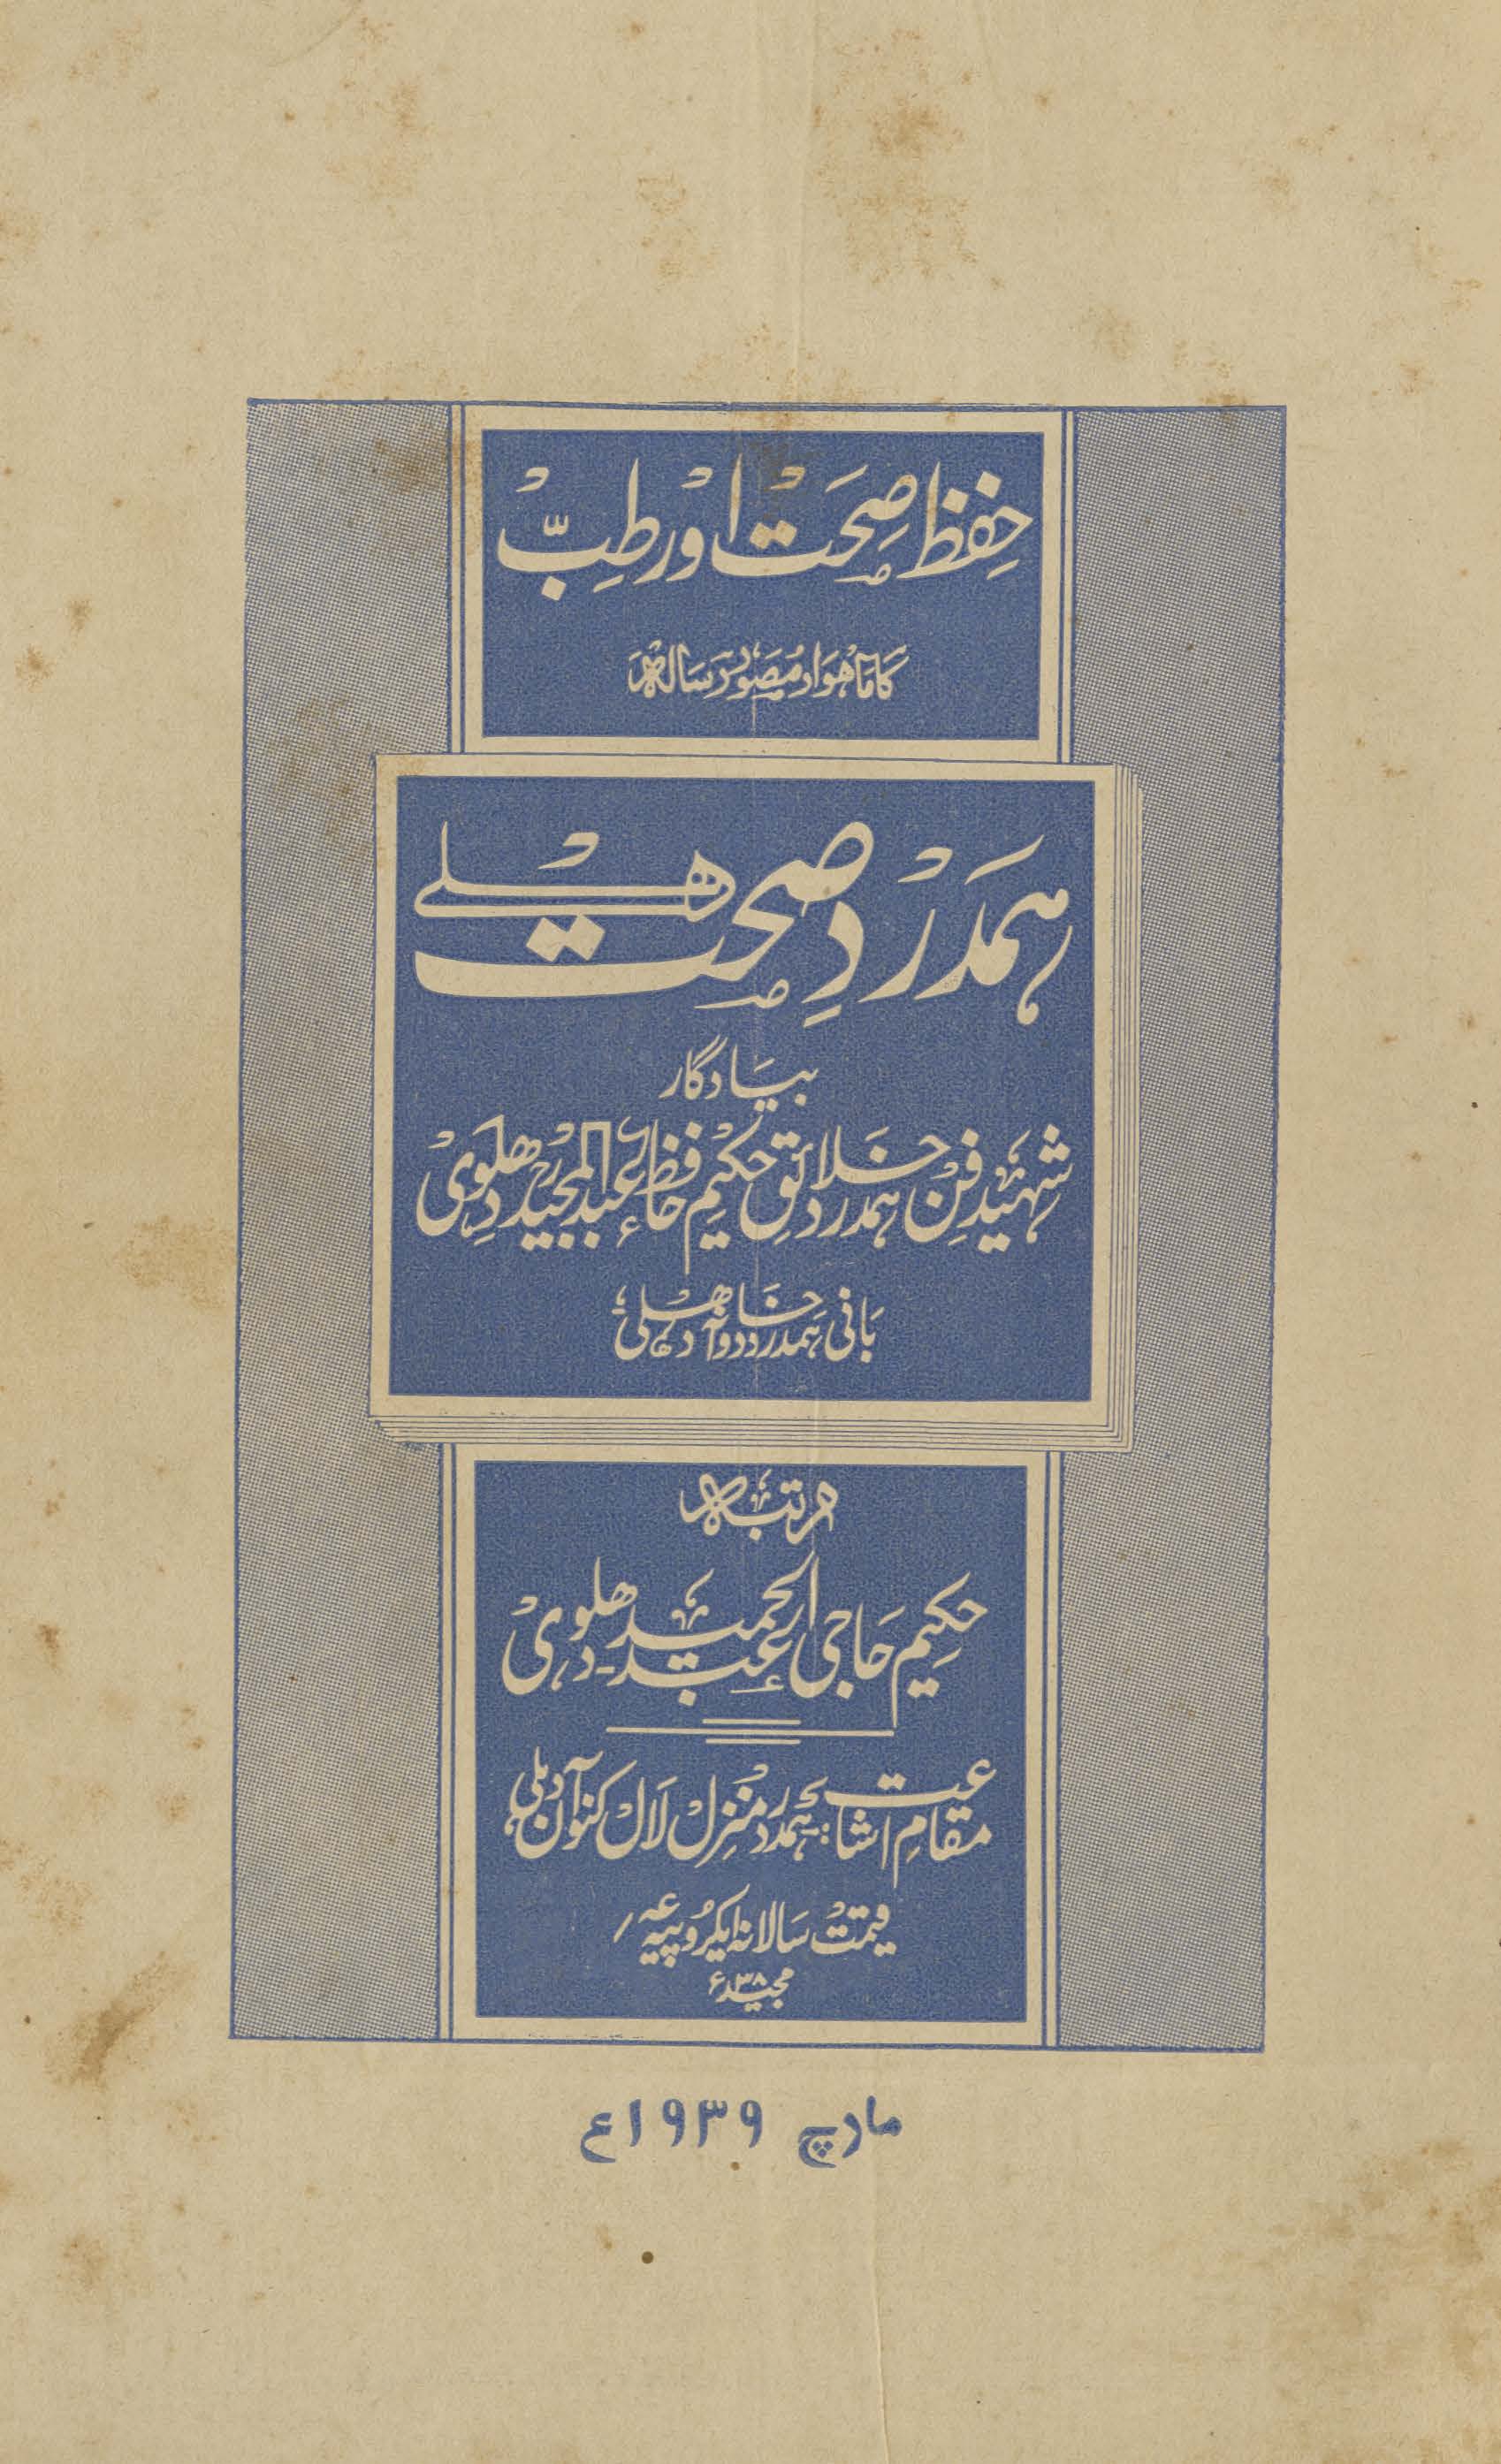 حِفظِ صِحَتْ اور طِبّ
کا مَاهوَار مُصَوّر رسَالہ
ہمدَرْدِ صحت دهلے
بیَادگار
شہید فن ہمدرد خَلائق حکیم حَافظ عَبدالمجید دهلوی
بَانی ہمدرد دواخَانہ دهلی
مرتبہ
حکیم حَاجی عبدالحمید دهلوی
مقام اشاعت: ہمدرد منزل لال کنواں دہلی
قیمت سَالانہ ایکروپیہ عہ؍
مجید ۳۸ء
مارچ ۱۹۳۹ع